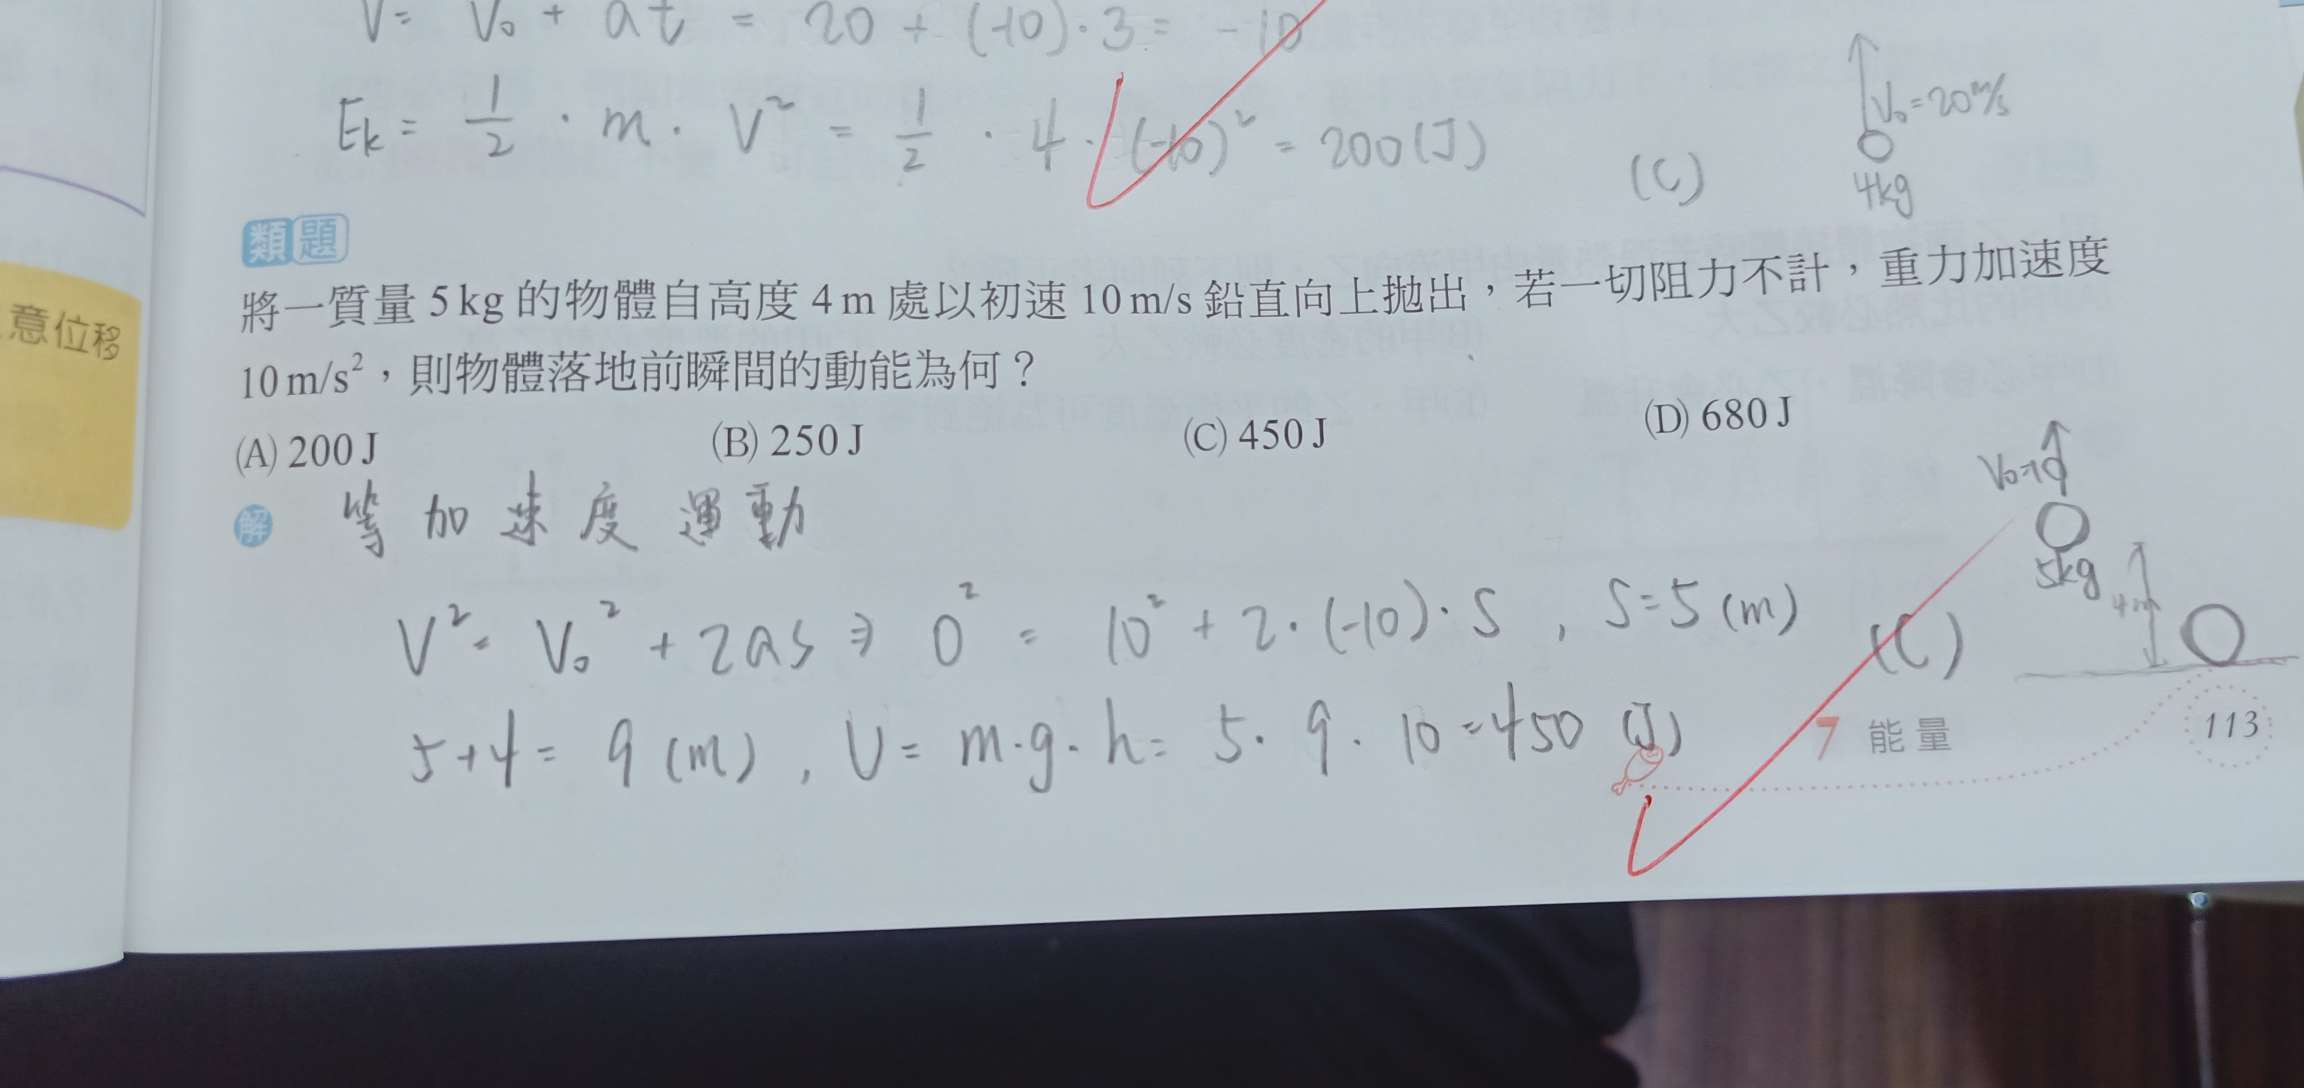 V = V₀ + at = 20 + (-10)·3 = -10
Ek = 1/2 · m · V² = 1/2 · 4 · (-10)² = 200(J)
(C)
V₀=20m/s
4kg
類題
將一質量 5 kg 的物體自高度 4 m 處以初速 10 m/s 鉛直向上拋出，若一切阻力不計，重力加速度
10 m/s²，則物體落地前瞬間的動能為何？
(A) 200 J (B) 250 J (C) 450 J (D) 680 J
意位移
解 等加速度運動
5kg
4m
V² = V₀² + 2as ⇒ 0² = 10² + 2·(-10)·S , S=5 (m) (C)
5+4 = 9 (m) , U = m·g·h = 5·9·10 = 450 (J)
7 能量 113